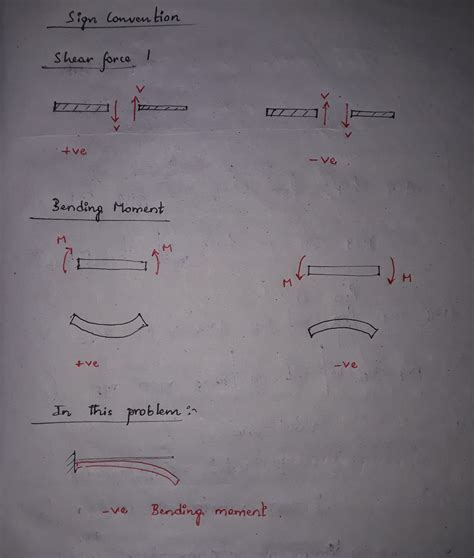 Sign Convention
Shear force !
V V
V V
+ve -ve
Bending Moment
M M
M M
+ve -ve
In this problem :-
-ve Bending moment.